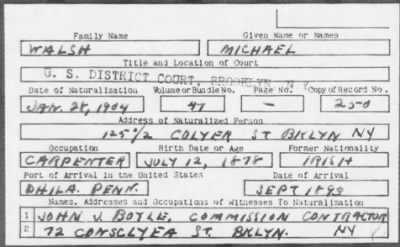 Family Name Given Name or Names
WALSH MICHAEL
Title and Location of Court
U. S. DISTRICT COURT, BROOKLYN, N.Y.
Date of Naturalization Volume or Bundle No. Page No. Copy of Record No.
JAN. 28, 1904 47 — 250
Address of Naturalized Person
125 1/2 COLYER ST BKLYN NY
Occupation Birth Date or Age Former Nationality
CARPENTER JULY 12, 1878 IRISH
Port of Arrival in the United States Date of Arrival
PHILA. PENN. SEPT 1899
Names, Addresses and Occupations of Witnesses To Naturalization
1 JOHN J. BOYLE, COMMISSION CONTRACTOR
2 72 CONSCLYEA ST. BKLYN. NY